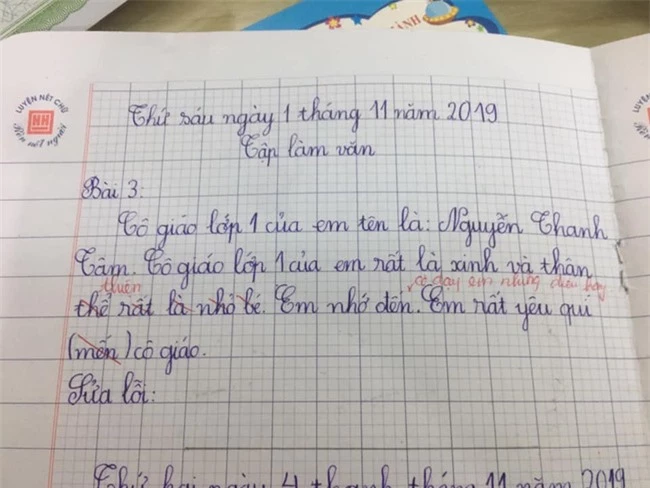 ÀNH
LUYỆN NÉT CHỮ
HH
Rèn nết người
Thứ sáu ngày 1 tháng 11 năm 2019
Tập làm văn
Bài 3:
Cô giáo lớp 1 của em tên là: Nguyễn Thanh
Tâm. Cô giáo lớp 1 của em rất là xinh và thân
thiện cô dạy em những điều hay
thể rất là nhỏ bé. Em nhớ đến. Em rất yêu quí
(mến) cô giáo.
Sửa lỗi:
Thứ hai ngày 4 thanh tháng 11 năm 2019